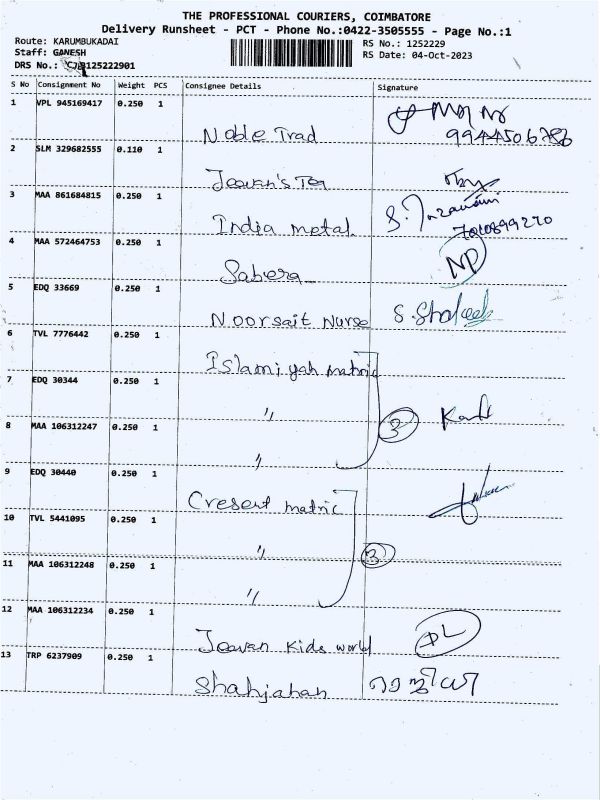 THE PROFESSIONAL COURIERS, COIMBATORE
Delivery Runsheet - PCT - Phone No.:0422-3505555 - Page No.:1
Route: KARUMBUKADAI
RS No.: 1252229
Staff: GANESH
RS Date: 04-Oct-2023
DRS No.: CJB125222901
S No Consignment No Weight PCS Consignee Details Signature
1 VPL 945169417 0.250 1
Noble Trad 9944506786
2 SLM 329682555 0.110 1
Jeevan's Tea
3 MAA 861684815 0.250 1
India metal
4 MAA 572464753 0.250 1
Sabera NP
5 EDQ 33669 0.250 1
Noorsait Nurse S. Shafeek
6 TVL 7776442 0.250 1
Islamiyah matric
7 EDQ 30344 0.250 1
〃 3
8 MAA 106312247 0.250 1
〃
9 EDQ 30440 0.250 1
Cresent matric
10 TVL 5441095 0.250 1
〃 3
11 MAA 106312248 0.250 1
〃
12 MAA 106312234 0.250 1
Jeevan kids world DL
13 TRP 6237909 0.250 1
Shahjahan